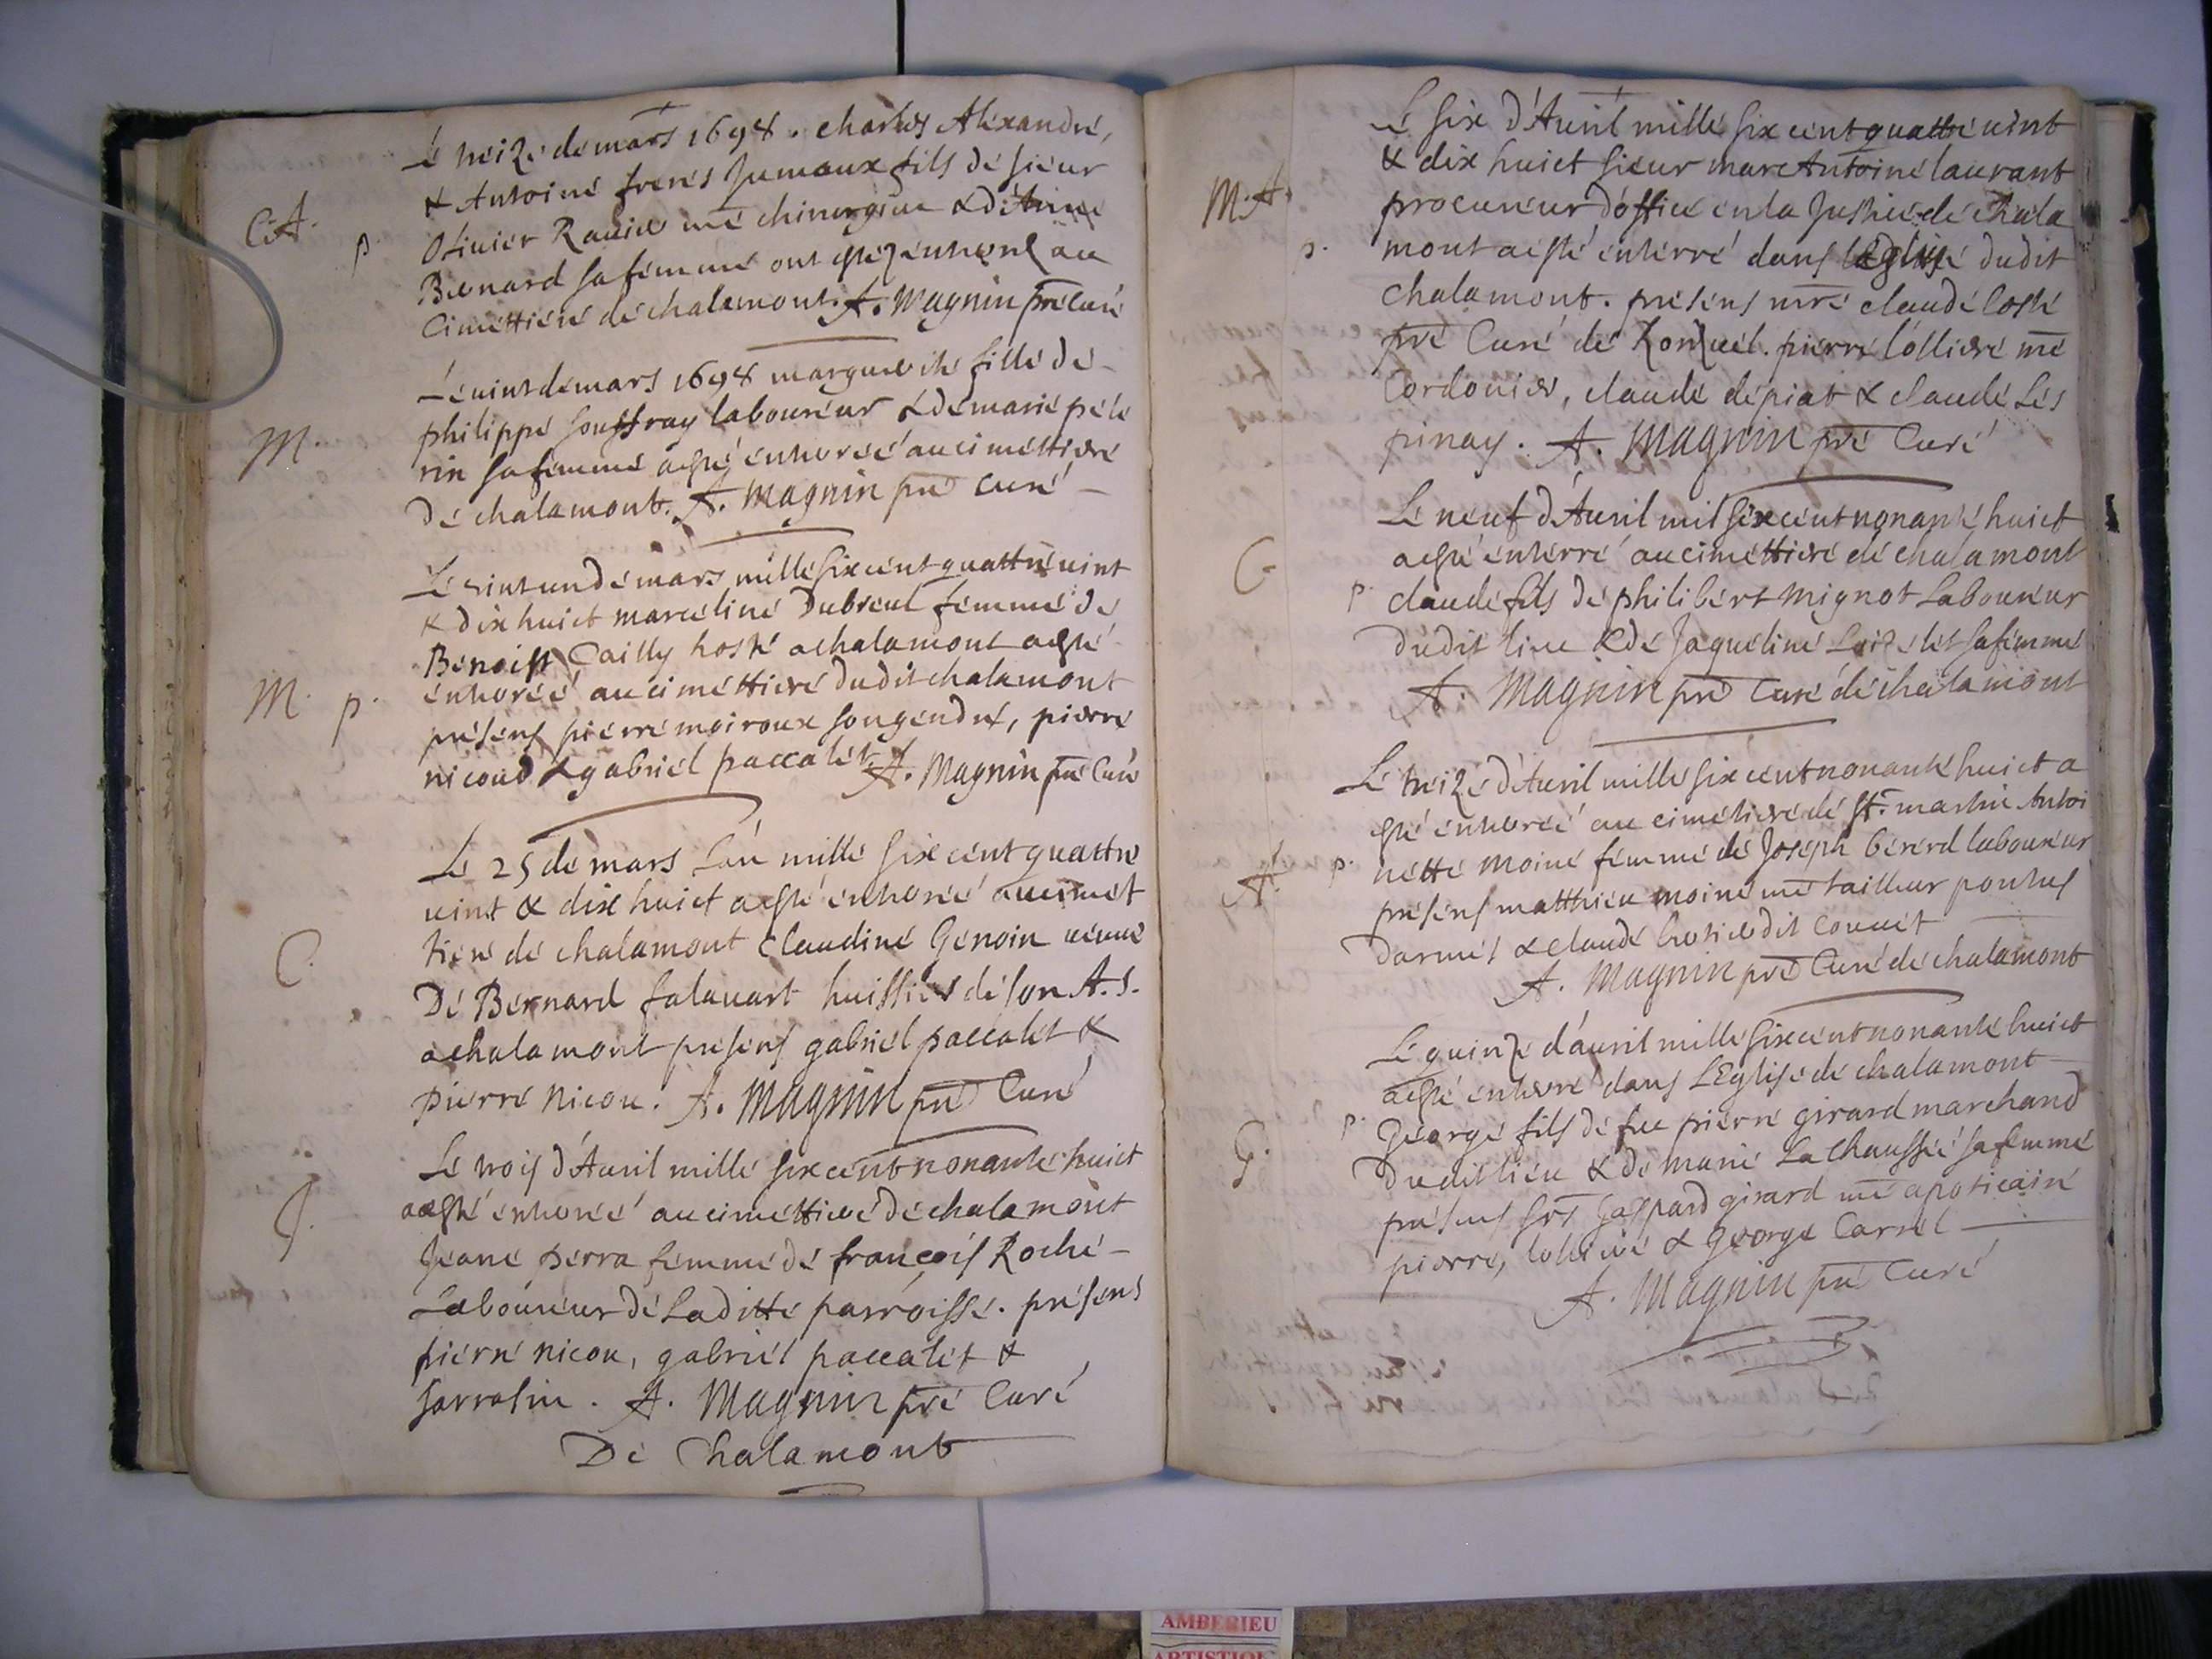 Le treize de mars 1698. charles Alexandre,
& Antoine freres Jumaux fils de sieur
C. A.
Olivier Ravier me chirurgien & d'Anne
p.
Bernard sa femme ont estez enterrez au
Cimettiere de chalamont. A. Magnin pre Curé
Le vint de mars 1698 marguerite fille de
philippe souffray laboureur & de marie pele
M.
rin sa femme a esté enterreé au cimettiere
de chalamont. A. Magnin pre curé
Le vint un de mars mille six cent quattre vint
& dix huict marceline Dubreul femme de
Benoist Cailly hoste a chalamont a esté
M. p.
enterreé au cimettiere dudit chalamont
presens pierre moiroux son gendre, pierre
nicoud & gabriel paccalet. A. Magnin pre Curé
Le 25 de mars L'an mille six cent quattre
vint & dix huict a esté enterreé au cimet
tiere de chalamont Claudine Genoin veuve
C.
De Bernard falavart huissier de son A. S.
a chalamont presens gabriel paccalet &
pierre Nicou. A. Magnin pre Curé
Le trois d'Auril mille six cent nonante huict
a esté enterreé au cimettiere de chalamont
J.
Jeane perra femme de françois Roche
Laboureur de Laditte parroisse. presens
pierre nicou, gabriel paccalet &
sarrasin. A. Magnin pre Curé
De Chalamont
Le six d'Auril mille six cent quattre vint
& dix huict sieur marc Antoine laurant
M. A.
procureur d'office en la Justice de Chala
p.
mont a esté enterré dans l'Eglise dudit
chalamont. presens mre claude Coste
pre Curé de Ronzuel. pierre lolliere me
Cordonier, claude depiat & claude Les
pinay. A. Magnin pre Curé
Le neuf d'Auril mil six cent nonante huict
a esté enterré au cimettiere de chalamont
C.
p.
claude fils de philibert mignot Laboureur
dudit lieu & de Jaqueline sa femme
A. Magnin pre Curé de chalamont
Le treize d'Auril mille six cent nonante huict a
esté enterreé au cimetiere de St. martin Antoi
A.
p.
nette moine femme de Joseph bererd laboureur
presens matthieu moine me tailleur pontus
darmet & claude dit couuet
A. Magnin pre Curé de chalamont
Le quinze d'auril mille six cent nonante huict
a esté enterré dans L'Eglise de chalamont
p.
George fils de feu pierre girard marchand
G.
Dudit lieu & de marie La Chaussée sa femme
presens srs Gaspard girard me apoticaire
pierre, lolliere & George Carrel
A. Magnin pre Curé
AMBERIEU
ARTISTIQ